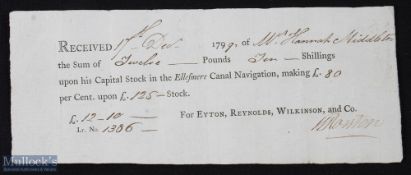 RECEIVED 17th Dec. 1799, of Mrs Hannah Middleton
the Sum of Twelve Pounds Ten Shillings
upon his Capital Stock in the Ellesmere Canal Navigation, making £. 80
per Cent. upon £. 125 Stock.
£. 12-10
For EYTON, REYNOLDS, WILKINSON, and Co.
Lr. No. 1386
Mullock's